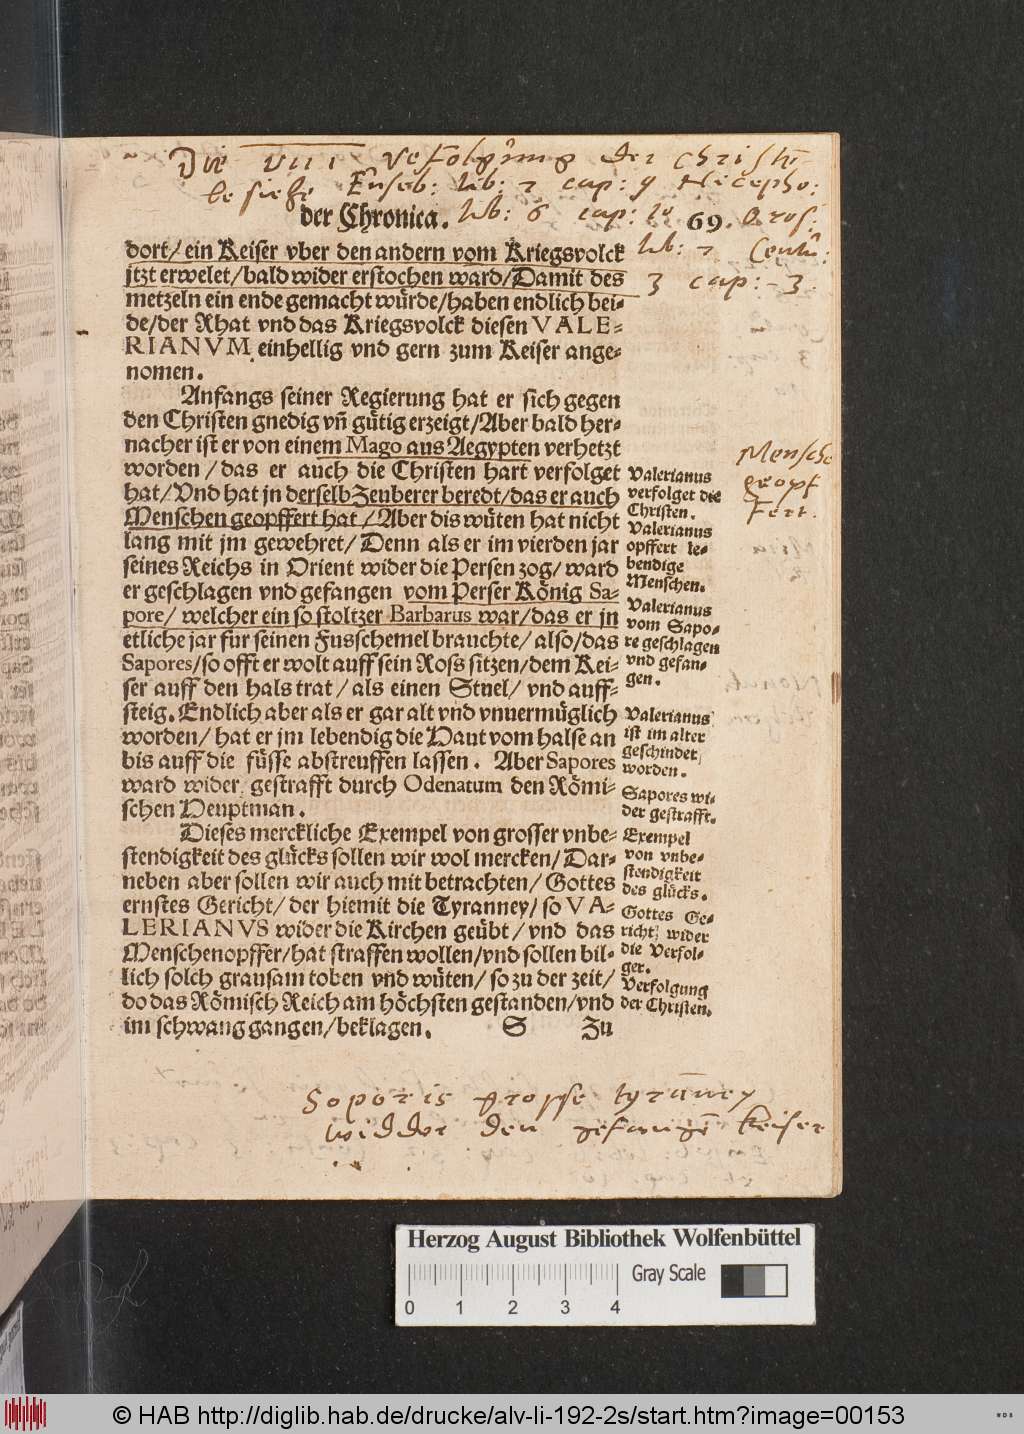 Die VIII vefolgung der christen
besiehe Euseb: lib: 7 cap: 9 Nicepho:
der Chronica. lib: 6 cap: 10 69. Oros:
lib: 7 Centu:
3 cap: 3.
dort/ ein Keiser vber den andern vom Kriegsvolck
jtzt erwelet/ bald wider erstochen ward/ Damit des
metzeln ein ende gemacht würde/ haben endlich bei-
de/ der Rhat vnd das Kriegsvolck diesen VALE-
RIANVM einhellig vnd gern zum Keiser ange-
nomen.
Anfangs seiner Regierung hat er sich gegen
den Christen gnedig vn̄ gütig erzeigt/ Aber bald her-
nacher ist er von einem Mago aus Aegypten verhetzt
worden/ das er auch die Christen hart verfolget
hat/ Vnd hat jn derselb Zeuberer beredt/ das er auch
Menschen geopffert hat/ Aber dis wüten hat nicht
lang mit jm gewehret/ Denn als er im vierden jar
seines Reichs in Orient wider die Persen zog/ ward
er geschlagen vnd gefangen vom Perser König Sa-
pore/ welcher ein so stoltzer Barbarus war/ das er jn
etliche jar fur seinen Fusschemel brauchte/ also/ das
Sapores/ so offt er wolt auff sein Ross sitzen/ dem Kei-
ser auff den hals trat/ als einen Stuel/ vnd auff-
steig. Endlich aber als er gar alt vnd vnuermüglich
worden/ hat er jm lebendig die Haut vom halse an
bis auff die füsse abstreuffen lassen. Aber Sapores
ward wider gestrafft durch Odenatum den Römi-
schen Heuptman.
Dieses merckliche Exempel von grosser vnbe-
stendigkeit des glücks sollen wir wol mercken/ Dar-
neben aber sollen wir auch mit betrachten/ Gottes
ernstes Gericht/ der hiemit die Tyranney/ so VA-
LERIANVS wider die Kirchen geübt/ vnd das
Menschenopffer/ hat straffen wollen/ vnd sollen bil-
lich solch grausam toben vnd wüten/ so zu der zeit/
do das Römisch Reich am höchsten gestanden/ vnd
im schwang gangen/ beklagen.
S Zu
Valerianus
verfolget die
Christen.
Valerianus
opffert le-
bendige
Menschen.
Valerianus
vom Sapo-
re geschlagen
vnd gefan-
gen.
Valerianus
ist im alter
geschindet
worden.
Sapores wi-
der gestrafft.
Exempel
von vnbe-
stendigkeit
des glücks.
Gottes Ge-
richt wider
die Verfol-
ger.
Verfolgung
der Christen.
Mensche
geopf
fert.
Soporis grosse tyraney
widder den gefangen Keiser
Herzog August Bibliothek Wolfenbüttel
Gray Scale
0 1 2 3 4
© HAB http://diglib.hab.de/drucke/alv-li-192-2s/start.htm?image=00153